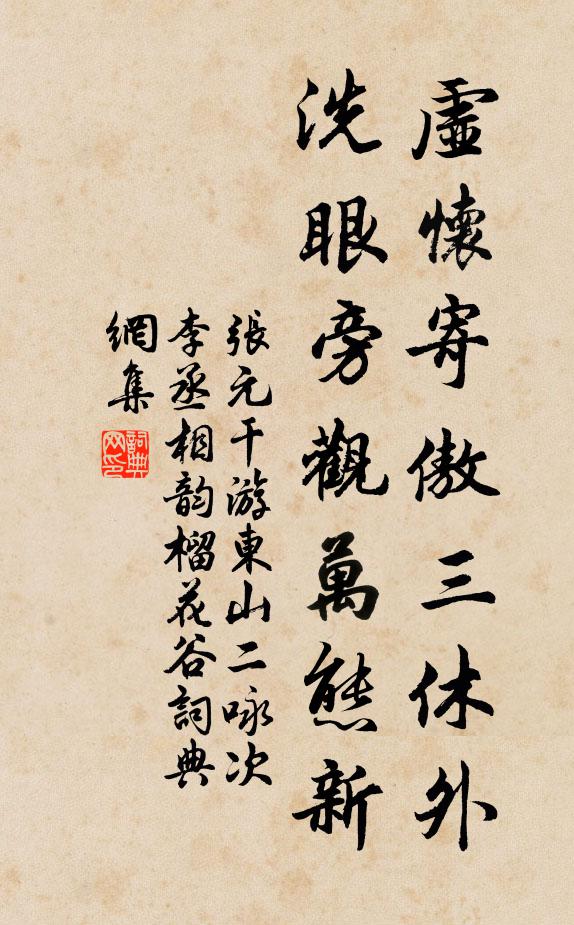 虛懷寄傲三休外
洗眼旁觀萬態新
張元干游東山二咏次
李丞相韵榴花谷詞典
網集
詞典
网印